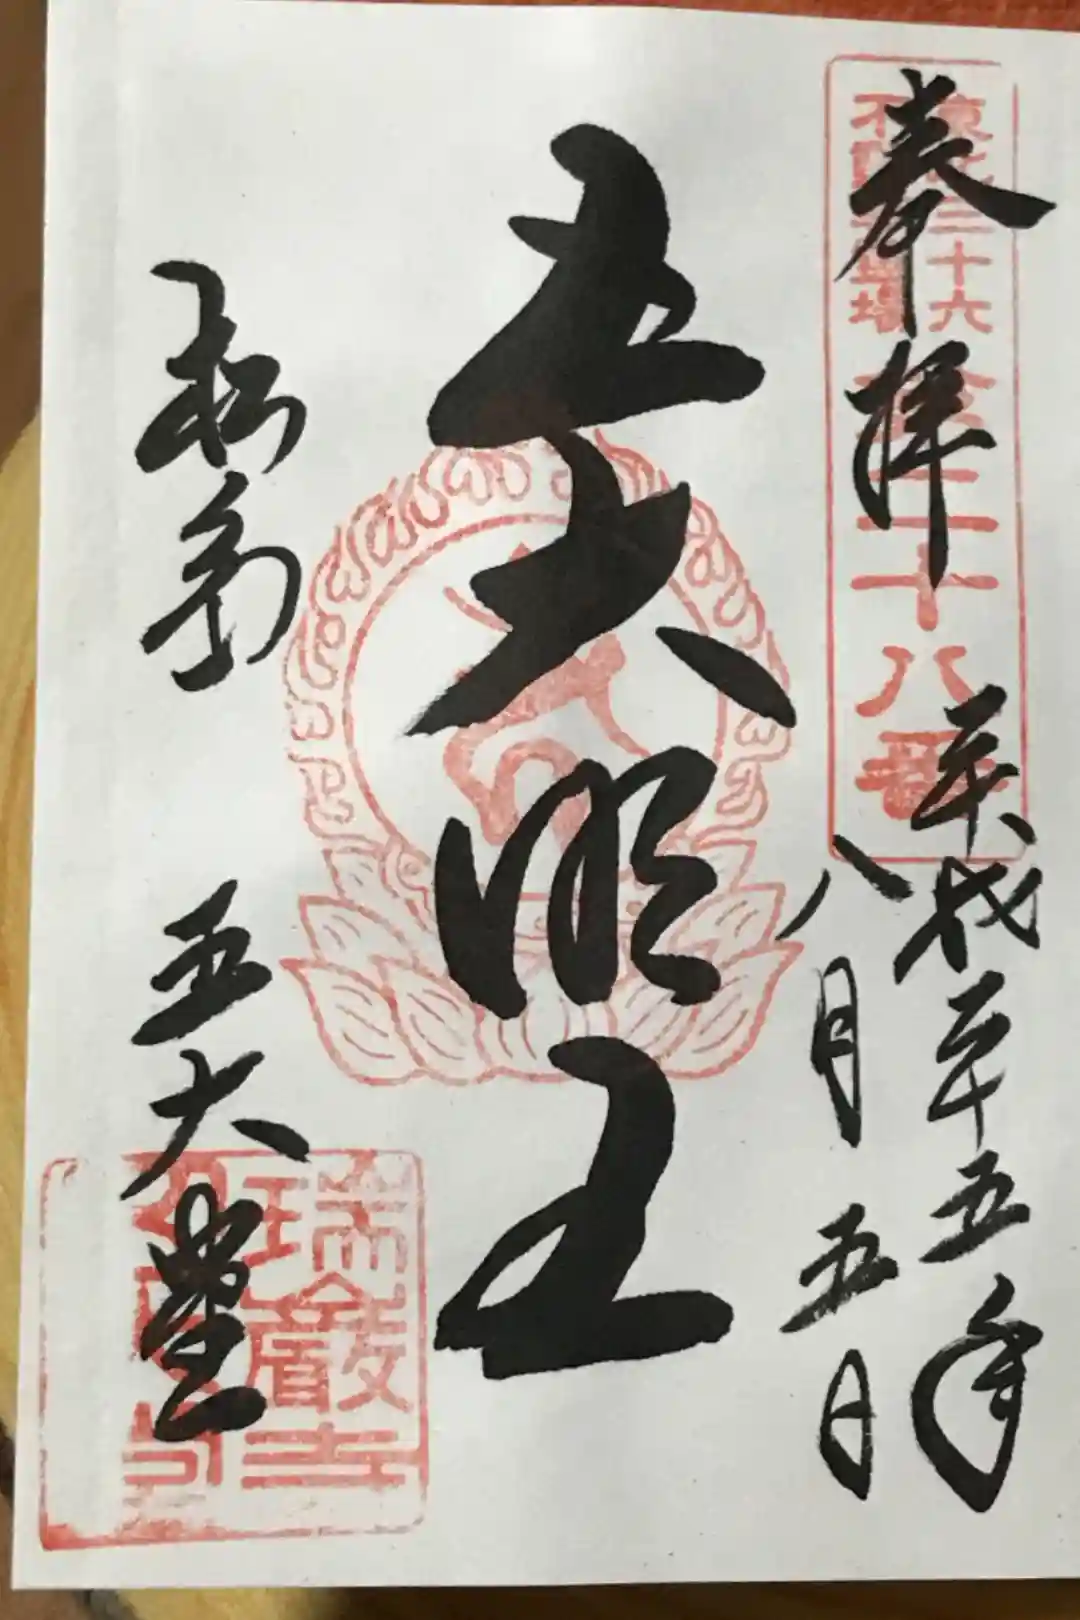 奉拝
東北三十六
不動尊霊場
第二十八番
平成二十五年
八月五日
五大明王
松島 五大堂
瑞巖寺